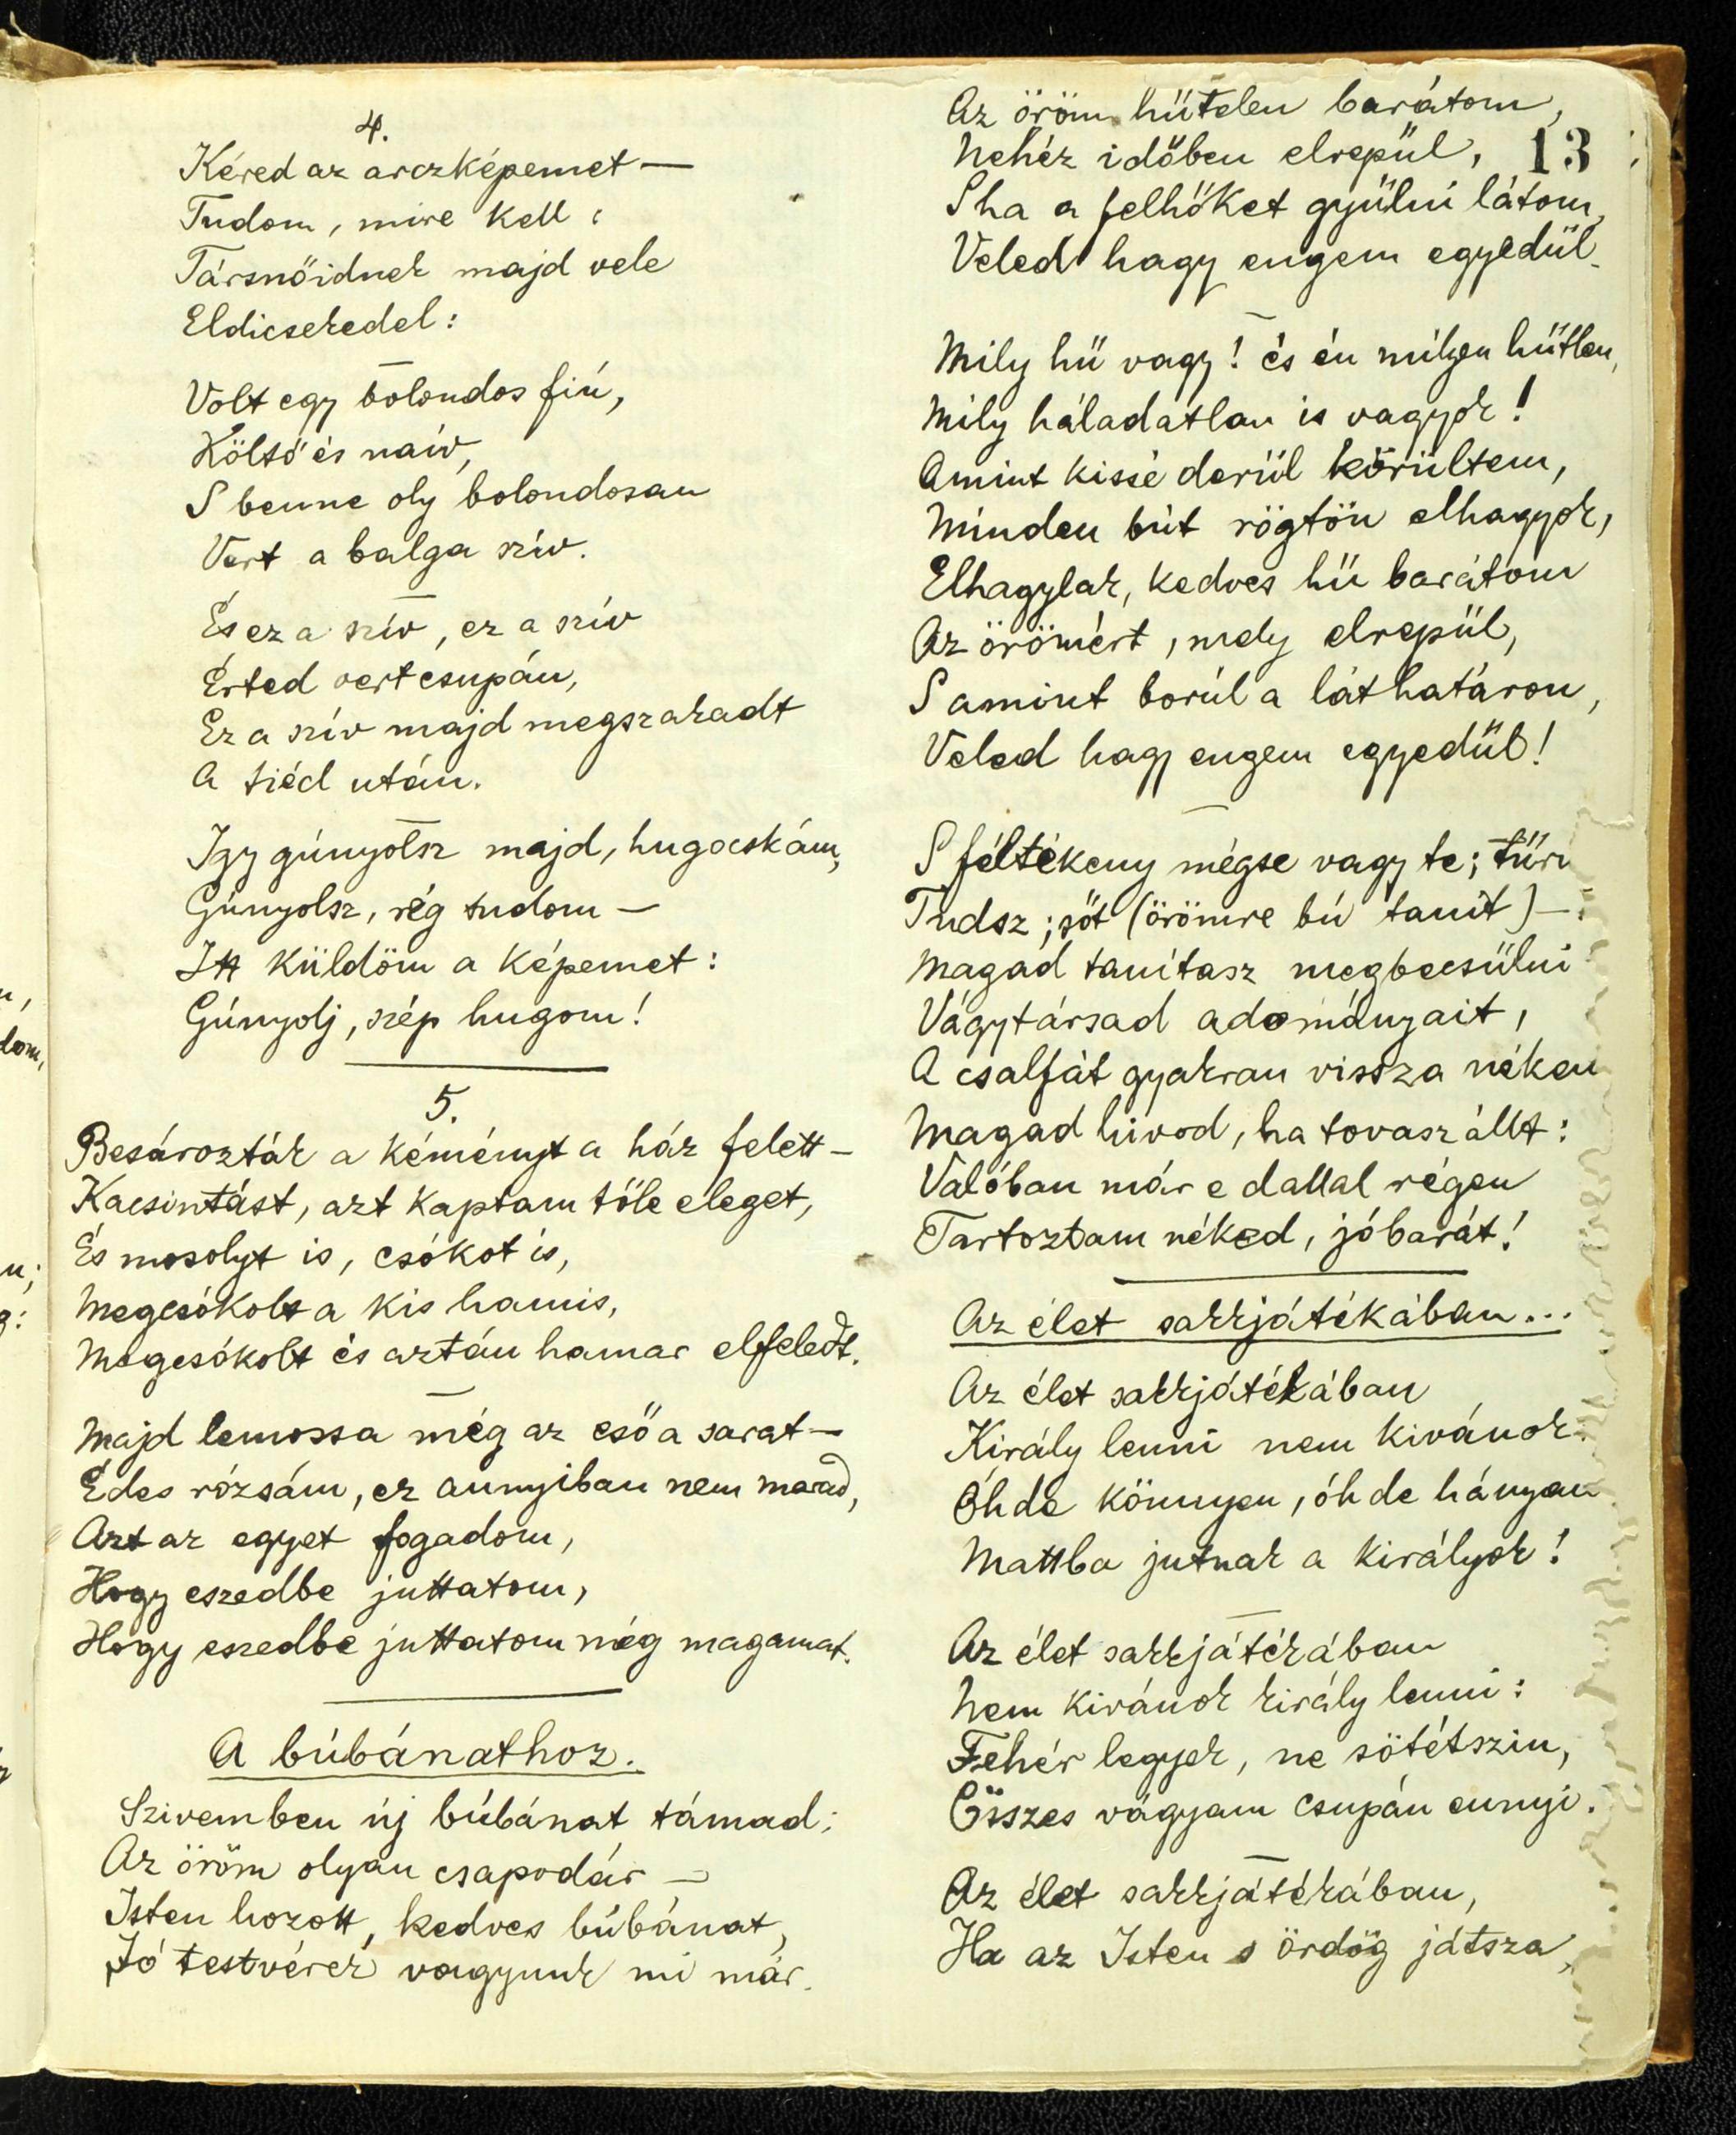 4.
Kéred az arczképemet —
Tudom, mire kell:
Társnőidnek majd vele
Eldicsekedel:
Volt egy bolondos fiú,
Költő és naív,
S benne oly bolondosan
Vert a balga szív.
És ez a szív, ez a szív
Érted vert csupán,
Ez a szív majd megszakadt
A tiéd után.
Igy gúnyolsz majd, hugocskám,
Gúnyolsz, rég tudom —
Itt küldöm a képemet:
Gúnyolj, szép hugom!
5.
Besározták a kéményt a ház felett —
Kacsintást, azt kaptam tőle eleget,
És mosolyt is, csókot is,
Megcsókolt a kis hamis,
Megcsókolt és aztán hamar elfeledt.
Majd lemossa még az eső a sarat —
Édes rózsám, ez annyiban nem marad,
Azt az egyet fogadom,
Hogy eszedbe juttatom,
Hogy eszedbe juttatom még magamat.
A búbánathoz.
Szivemben új búbánat támad;
Az öröm olyan csapodár —
Isten hozott, kedves búbánat,
Jó testvérek vagyunk mi már.
Az öröm hűtelen barátom,
Nehéz időben elrepül,
13
S ha a felhőket gyűlni látom,
Veled hagy engem egyedül.
Mily hű vagy! és én milyen hűtlen,
Mily háladatlan is vagyok!
Amint kissé derül körültem,
Minden bút rögtön elhagyok,
Elhagylak, kedves hű barátom
Az örömért, mely elrepül,
S amint borúl a láthatáron,
Veled hagy engem egyedül!
S féltékeny mégse vagy te; tűrni
Tudsz; sőt (örömre bú tanít) —
Magad tanítasz megbecsülni
Vágytársad adományait,
A csalfát gyakran vissza nékem
Magad hivod, ha tovaszállt:
Valóban már e dallal régen
Tartoztam néked, jóbarát!
Az élet sakkjátékában...
Az élet sakkjátékában
Király lenni nem kivánok:
Óh de könnyen, óh de hányan
Mattba jutnak a királyok!
Az élet sakkjátékában
Nem kivánok király lenni:
Fehér legyek, ne sötétszin,
Összes vágyam csupán ennyi.
Az élet sakkjátékában,
Ha az Isten s ördög játsza,